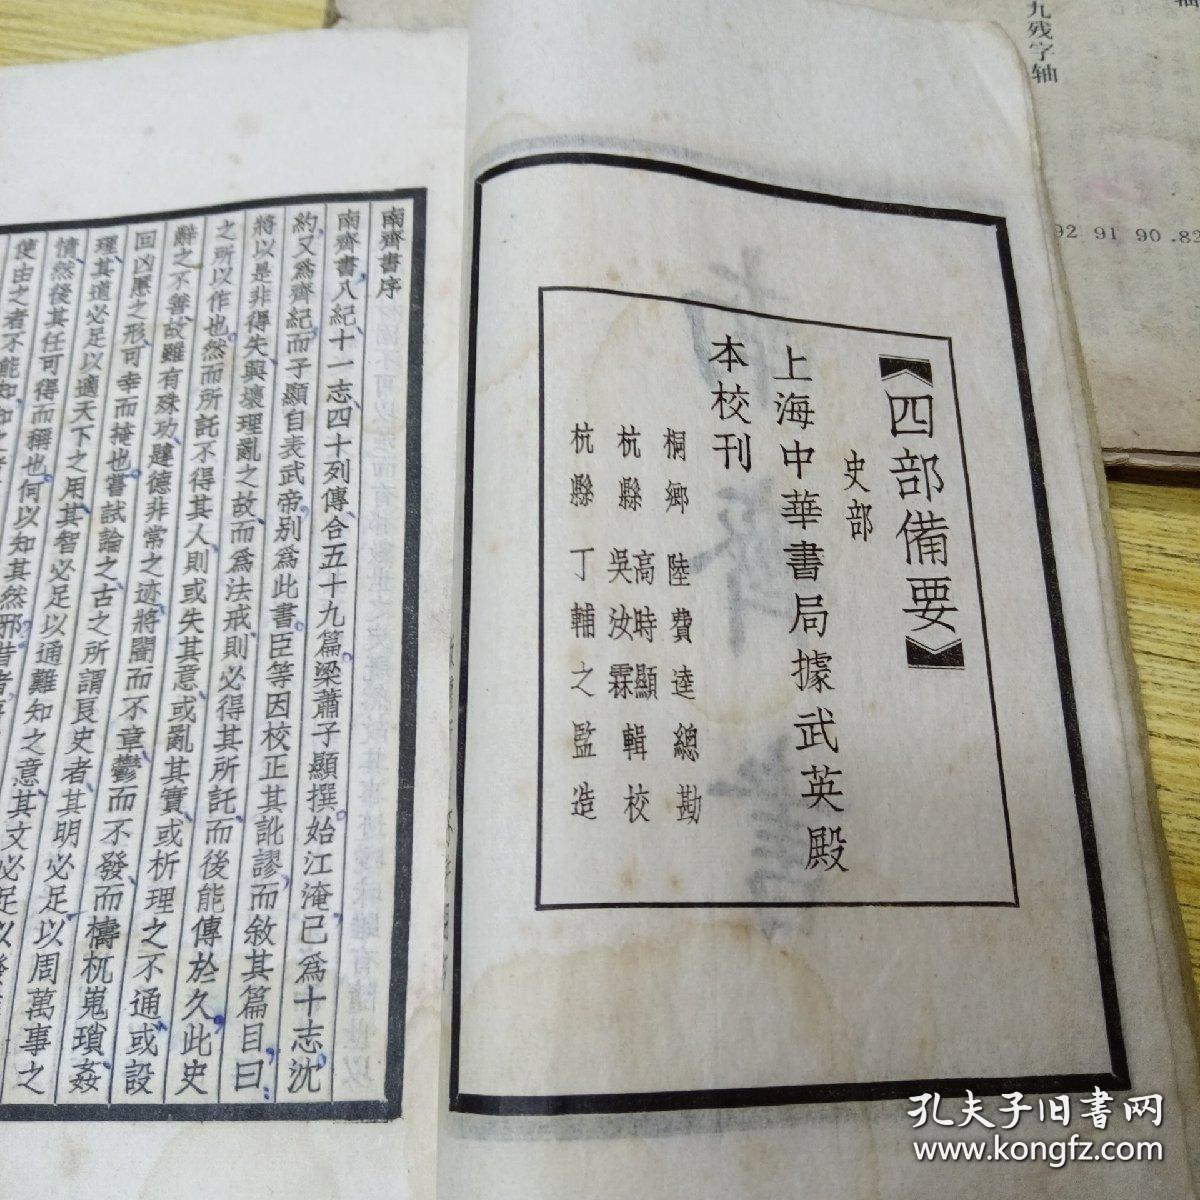 九残字轴
92 91 90 .82
【四部備要】
史部
上海中華書局據武英殿
本校刊
桐鄉 陸費逵總勘
杭縣 高時顯 吳汝霖 輯校
杭縣 丁輔之監造
南齊書序
南齊書八紀十一志四十列傳合五十九篇梁蕭子顯撰始江淹已爲十志沈
約又爲齊紀而子顯自表武帝别爲此書臣等因校正其訛謬而敘其篇目曰
將以是非得失興壞理亂之故而爲法戒則必得其所託而後能傳於久此史
之所以作也然而所託不得其人則或失其意或亂其實或析理之不通或設
辭之不善故雖有殊功韙德非常之迹將闇而不章鬱而不發而檮杌嵬瑣姦
回凶慝之形可幸而掩也嘗試論之古之所謂良史者其明必足以周萬事之
理其道必足以適天下之用其智必足以通難知之意其文必足以發
情然後其任可得而稱也何以知其然邪昔者
使由之者不能知
孔夫子旧書网
www.kongfz.com